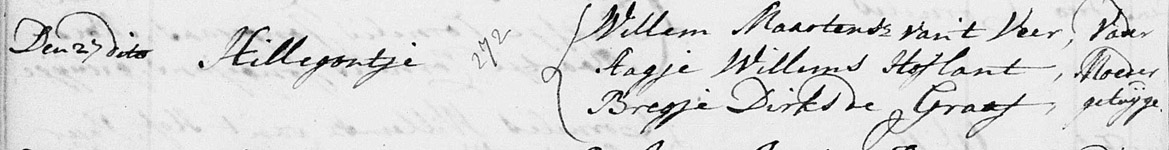 Den 27 dito Hillegontje 272 Willem Maartensz van't Veer, Vader
Aagje Willems Hoflant, Moeder
Bregje Dirks de Graaf, getuijge.